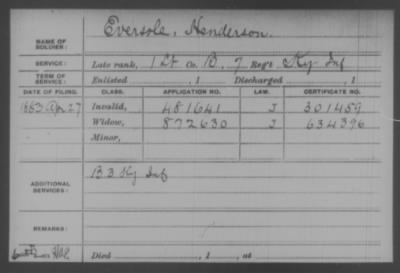 NAME OF SOLDIER: Eversole, Henderson.
SERVICE: Late rank, 1 Lt Co. B, 7 Reg't Ky Inf
TERM OF SERVICE: Enlisted , 1 Discharged , 1
DATE OF FILING. CLASS. APPLICATION NO. LAW. CERTIFICATE NO.
1883 Apr 27 Invalid, 481641 J 301459
Widow, 872630 J 634396
Minor,
ADDITIONAL SERVICES: B 3 Ky Inf
REMARKS:
Died , 1 , at